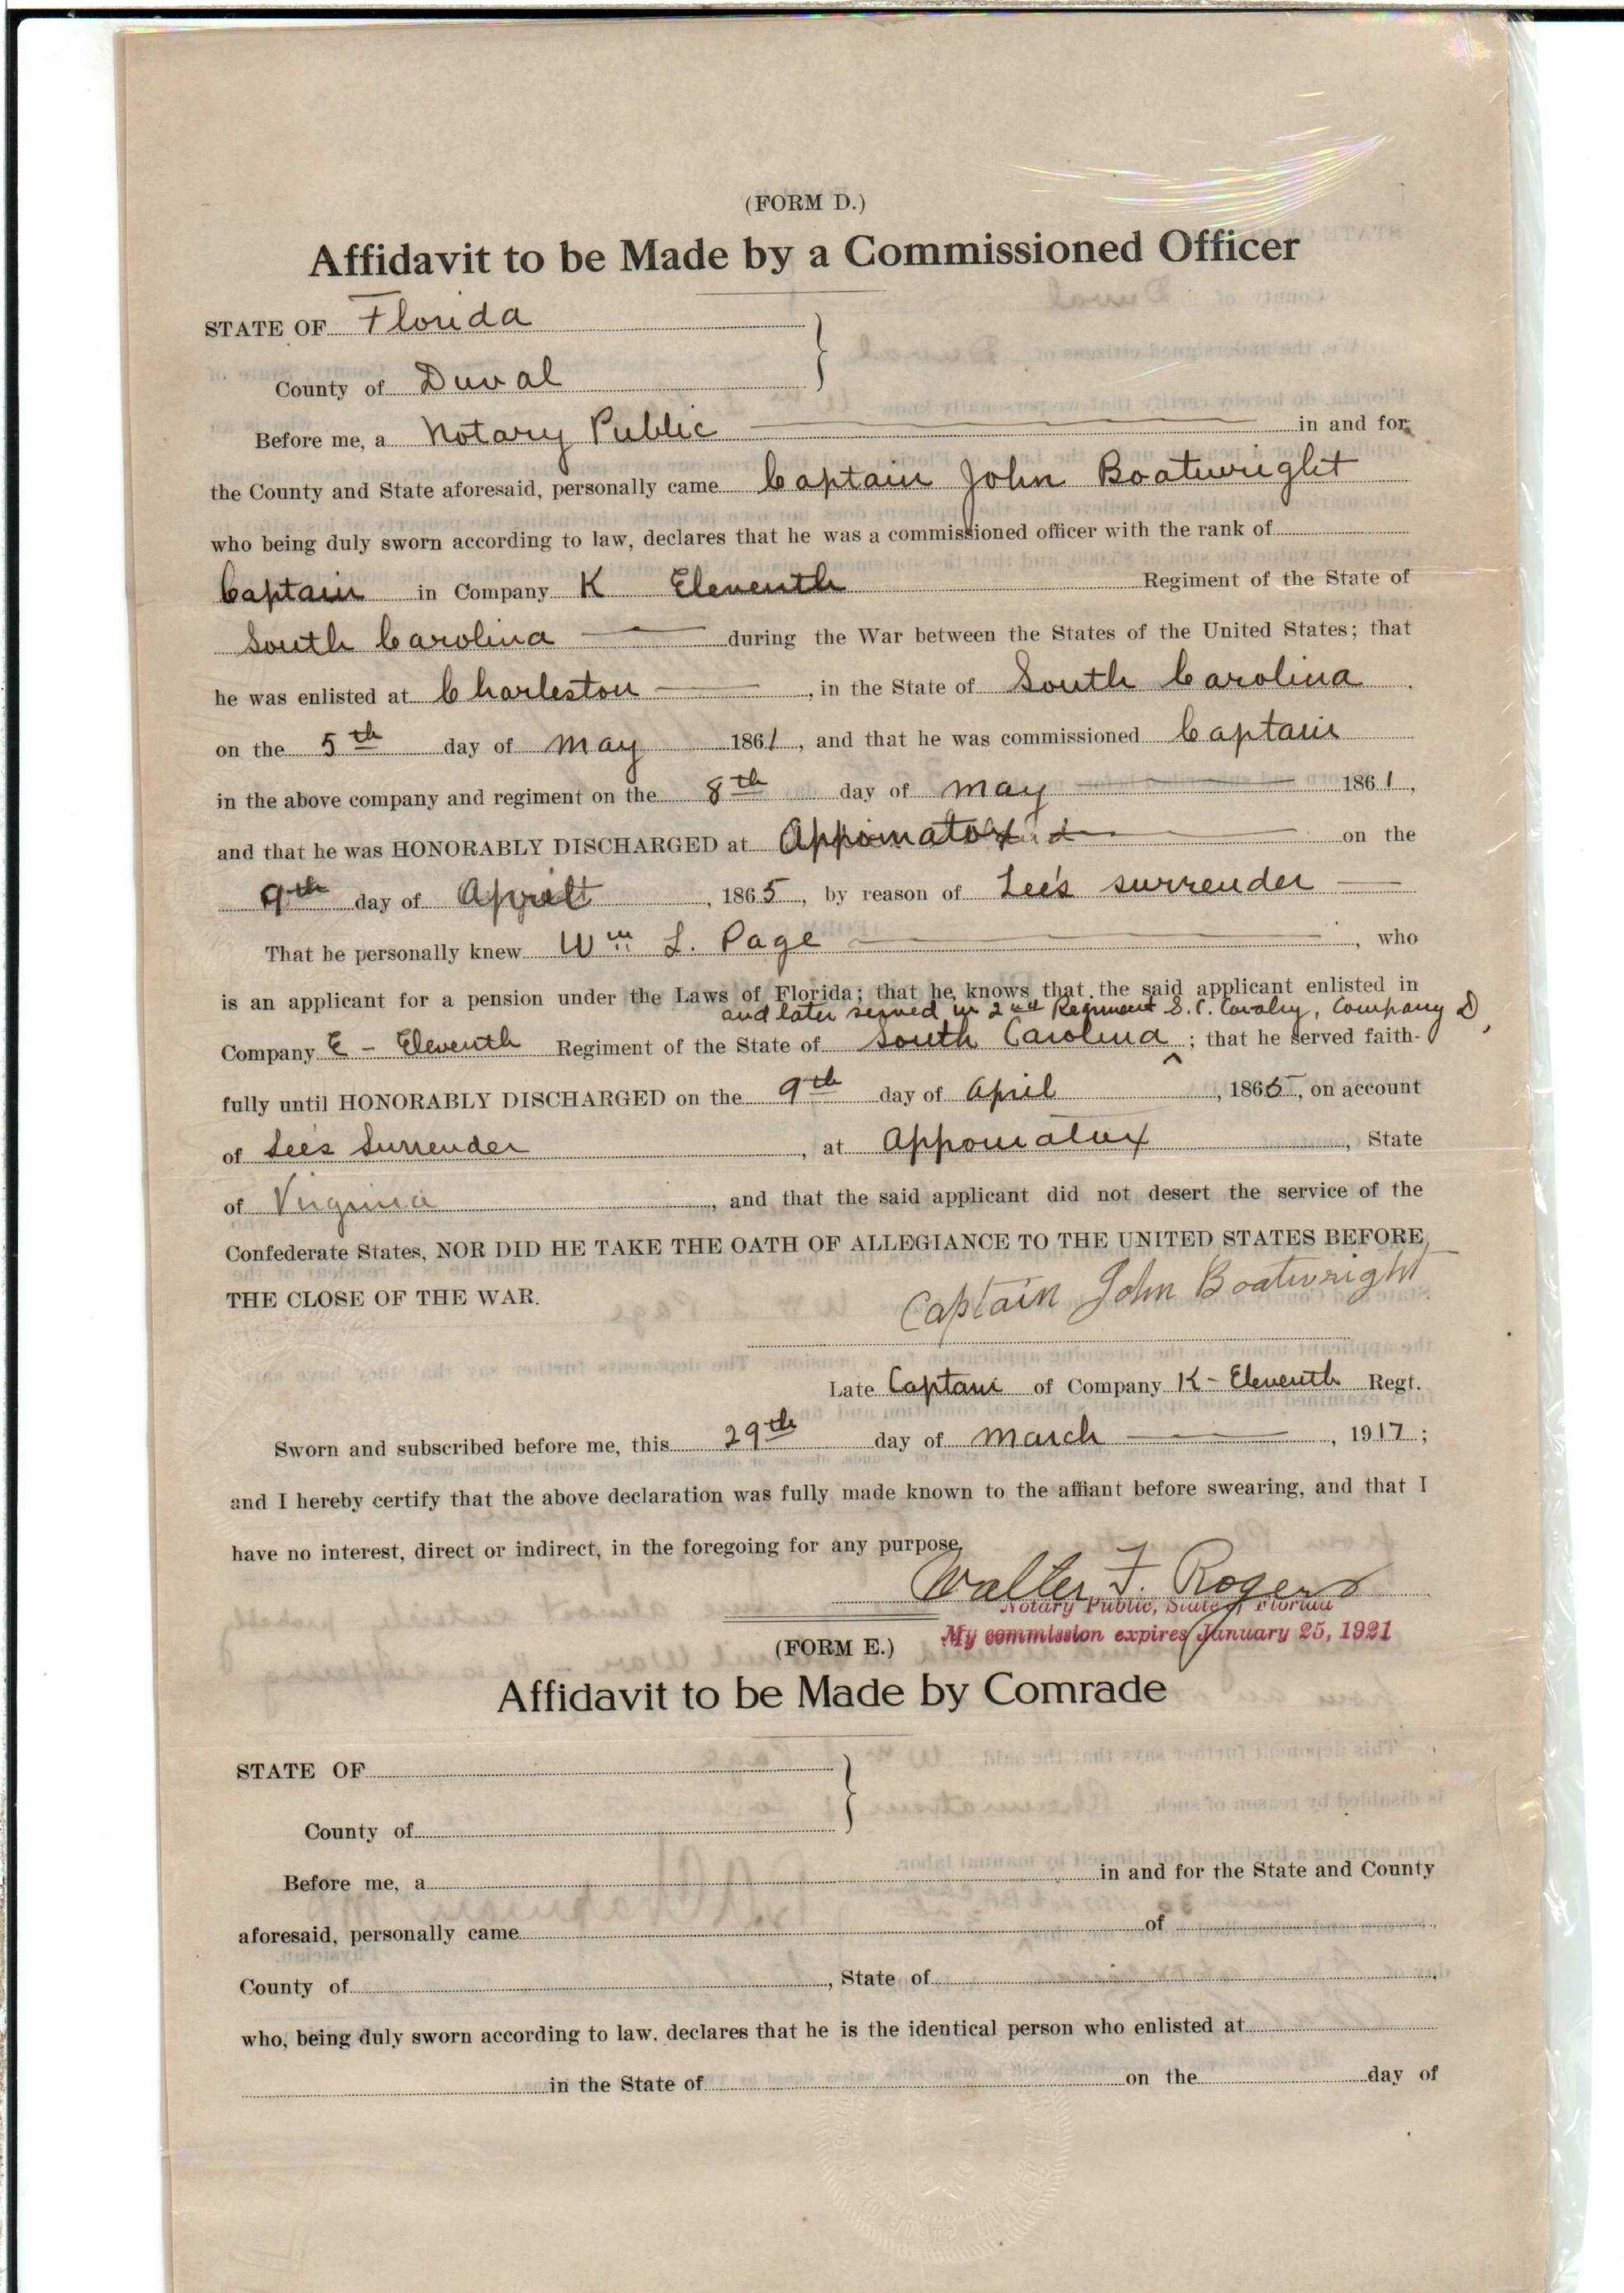 (FORM D.)
Affidavit to be Made by a Commissioned Officer
STATE OF Florida
County of Duval
Before me, a Notary Public in and for
the County and State aforesaid, personally came Captain John Boatwright
who being duly sworn according to law, declares that he was a commissioned officer with the rank of
Captain in Company K Eleventh Regiment of the State of
South Carolina during the War between the States of the United States; that
he was enlisted at Charleston, in the State of South Carolina.
on the 5th day of May 1861, and that he was commissioned Captain
in the above company and regiment on the 8th day of May 1861,
and that he was HONORABLY DISCHARGED at Appomatox on the
9th day of April, 1865, by reason of Lee's surrender
That he personally knew Wm L. Page, who
is an applicant for a pension under the Laws of Florida; that he knows that the said applicant enlisted in
and later served in 2nd Regiment S.C. Cavalry, Company D,
Company E - Eleventh Regiment of the State of South Carolina ^; that he served faith-
fully until HONORABLY DISCHARGED on the 9th day of April, 1865, on account
of Lee's Surrender, at Appomatox, State
of Virginia, and that the said applicant did not desert the service of the
Confederate States, NOR DID HE TAKE THE OATH OF ALLEGIANCE TO THE UNITED STATES BEFORE
THE CLOSE OF THE WAR.
Captain John Boatwright
Late Captain of Company K - Eleventh Regt.
Sworn and subscribed before me, this 29th day of March, 1917;
and I hereby certify that the above declaration was fully made known to the affiant before swearing, and that I
have no interest, direct or indirect, in the foregoing for any purpose.
Walter F. Rogers
Notary Public, State of Florida
My commission expires January 25, 1921
(FORM E.)
Affidavit to be Made by Comrade
STATE OF
County of
Before me, a in and for the State and County
aforesaid, personally came of
County of, State of
who, being duly sworn according to law, declares that he is the identical person who enlisted at
in the State of on the day of